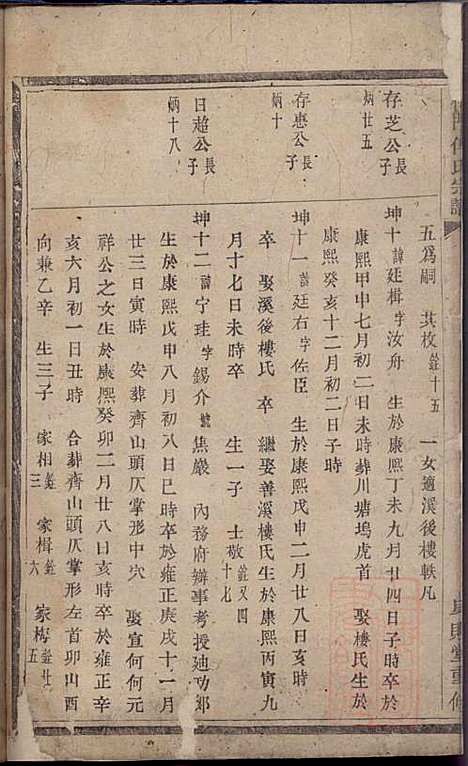 氏宗譜
五爲嗣 其枚鉦十五 一女適溪後樓軼凡
存芝公長子
炳廿五
坤十諱廷楫字汝舟 生於康熙丁未九月廿四日子時卒於
康熙甲申七月初二日未時葬川塘塢虎首 娶樓氏生於
康熙癸亥十二月初二日子時
存惠公長子
炳十
坤十一諱廷右字佐臣 生於康熙戊申二月廿八日亥時
卒 娶溪後樓氏 卒 繼娶善溪樓氏生於康熙丙寅九
月十七日未時卒 生一子 士敬鉦又四十七
日超公長子
炳十八
坤十二諱宁珪字錫介號焦巖 內務府辦事考授迪功郊
生於康熙戊申八月初八日巳時卒於雍正庚戌十一月
廿三日寅時 安葬齊山頭仄掌形中穴 娶宣何何元
祥公之女生於康熙癸卯二月廿八日亥時卒於雍正辛
亥六月初一日丑時 合葬齊山頭仄掌形左首卯山酉
向兼乙辛 生三子 家相鉦三 家楫鉦六 家梅鉦廿五
堂重修